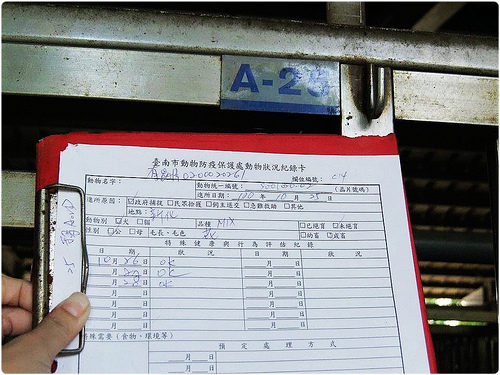 A-25
臺南市動物防疫保護處動物狀況紀錄卡
動物名字：
欄位編號：
動物統一編號：
(晶片號碼)
進所日期：100 年 10 月 25 日
進所原因：☑政府捕捉 □民眾拾獲 □飼主送交 □急難救助 □其他
地點：新化
動物別 ☑犬 □貓
品種 MIX
□已絕育 □未絕育
性別 □公 □母 毛長、毛色
□幼畜 □成畜
特殊健康與行為評估紀錄
日期 狀況 日期 狀況
10月26日 OK 月 日
月 日 OK 月 日
月28日 OK 月 日
月 日 月 日
月 日 月 日
月 日 月 日
特殊需要(食物、環境等)
預定處理方式
月 日
月 日